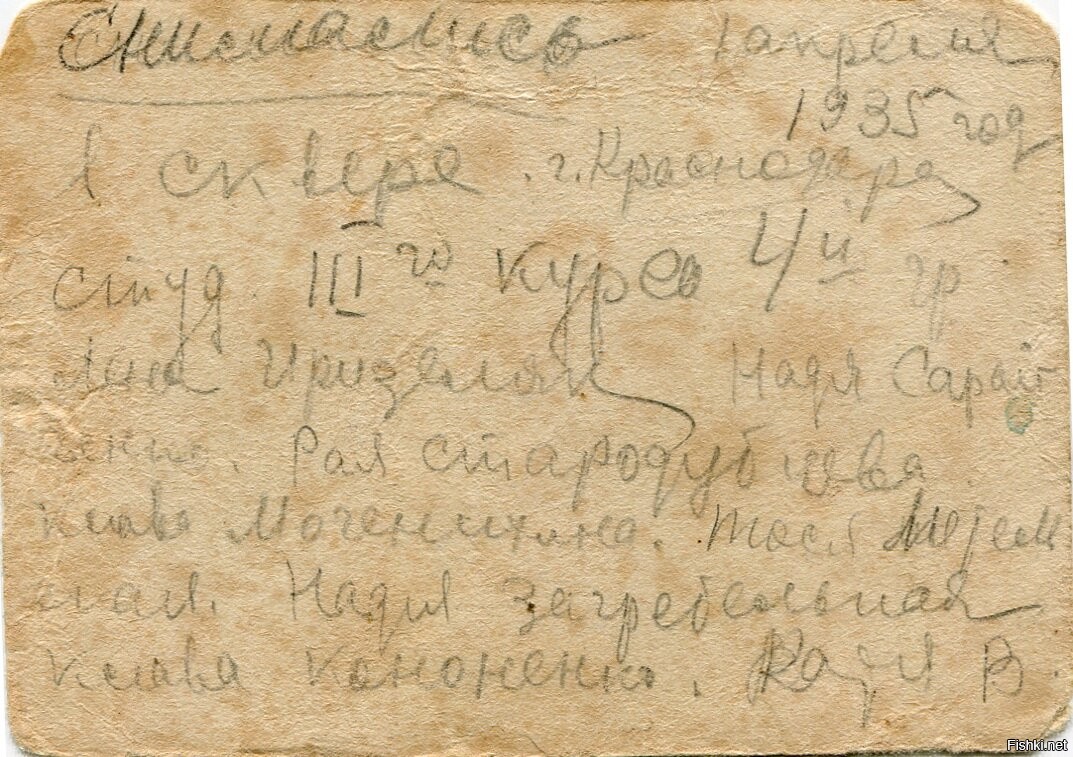 Снимались 1 апреля
1935 год
в сквере г. Краснодара
студ. III го курса 4й гр.
Лена Надя Сарай
ченко. Рая Стародубцова
Клава Тося
Надя Загребельная
Клава Кононенко. Катя В.
Fishki.net